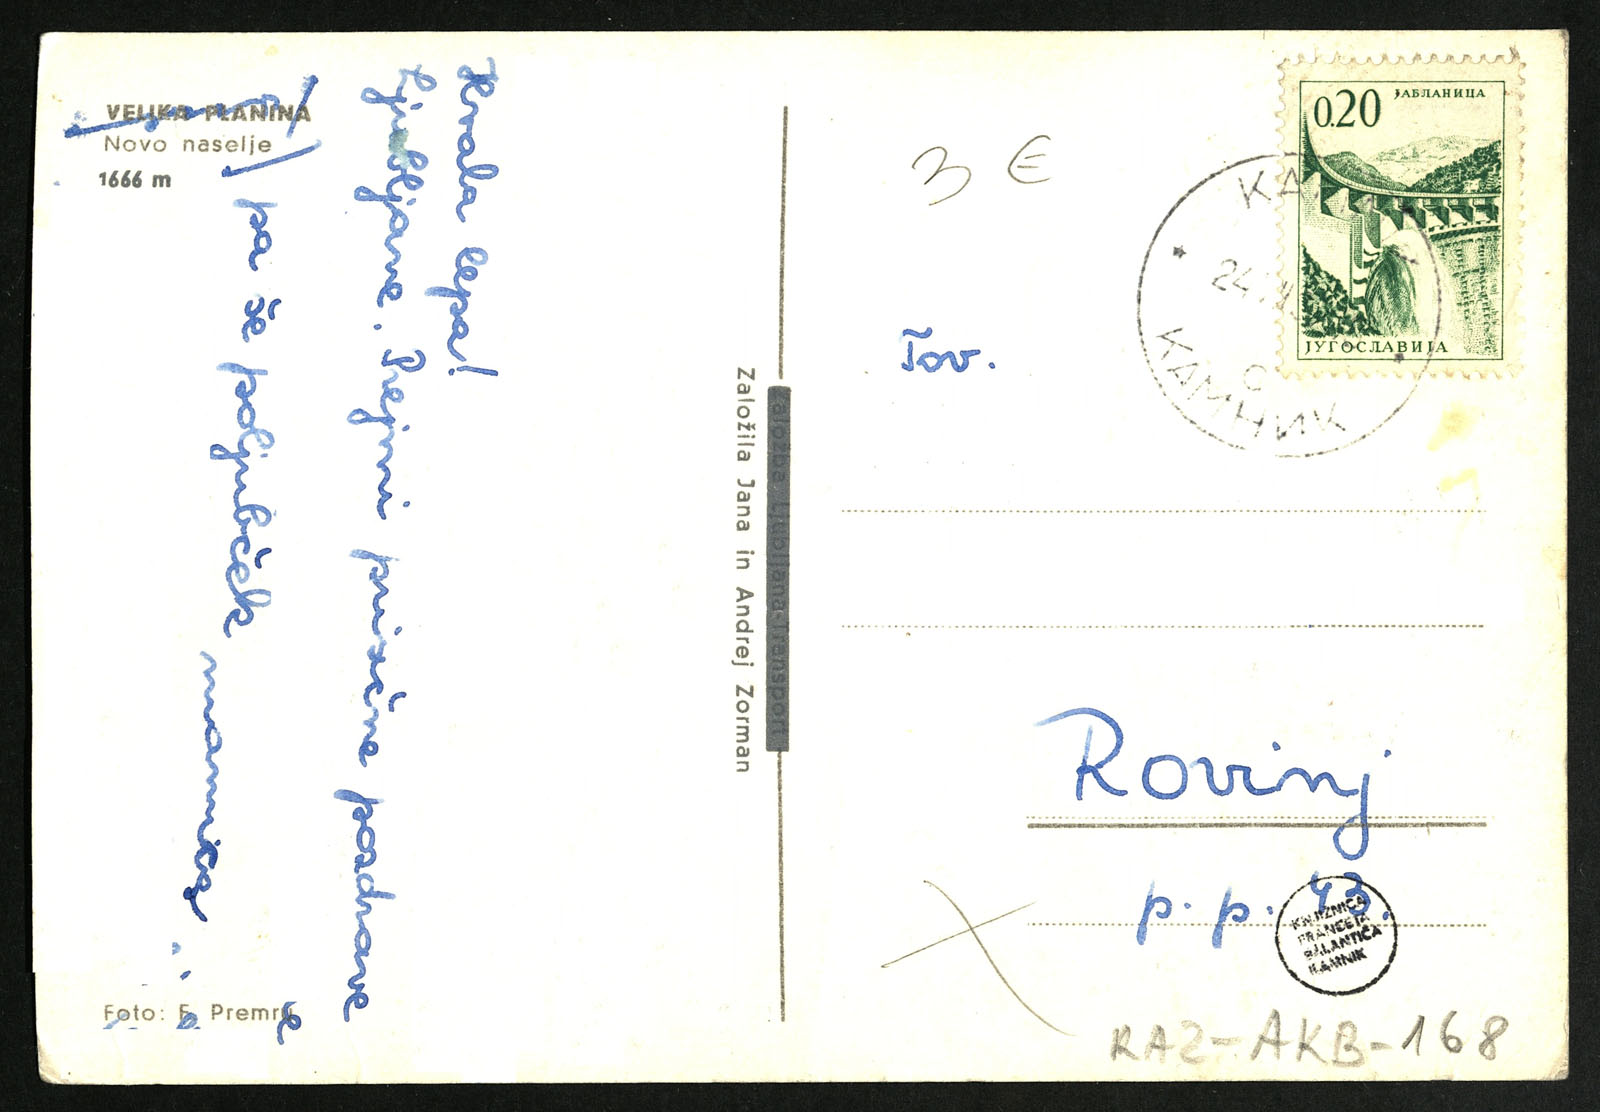 VELIKA PLANINA
Novo naselje
1666 m
Hvala lepa!
Ljubljane. Prejmi prisrčne pozdrave
pa še poljubček
Foto: F. Premru
Založba Ljubljana-Transport
Založila Jana in Andrej Zorman
3 €
0.20
ЈАБЛАНИЦА
ЈУГОСЛАВИЈА
КА
24
C
КАМНИК
Tov.
Rovinj
p. p. 43.
KNJIŽNICA
FRANCETA
BALANTIČA
KAMNIK
RAZ-AKB-168